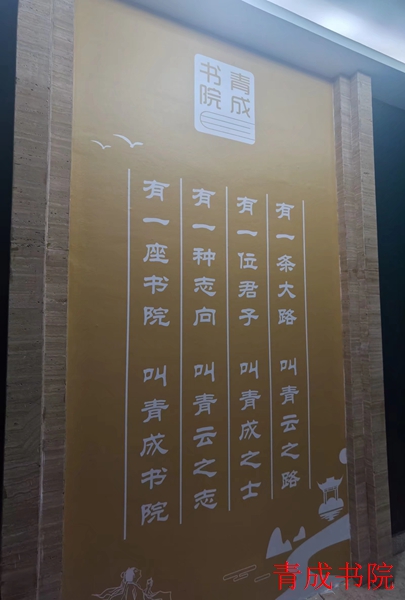 青成
书院
有一条大路 叫青云之路
有一位君子 叫青成之士
有一种志向 叫青云之志
有一座书院 叫青成书院
青成书院